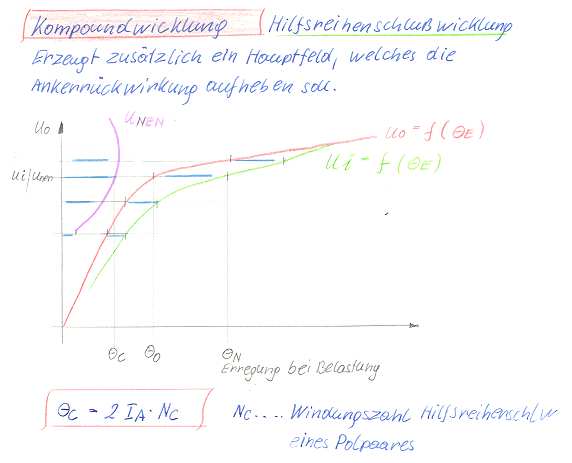 Kompoundwicklung Hilfsreihenschlußwicklung
Erzeugt zusätzlich ein Hauptfeld, welches die
Ankerrückwirkung aufheben soll.
U0
UNEN
U0 = f(ΘE)
Ui = f(ΘE)
Ui/UNEN
ΘC Θ0 ΘN
Erregung bei Belastung
ΘC = 2 IA · NC NC .... Windungszahl Hilfsreihenschlw
eines Polpaares